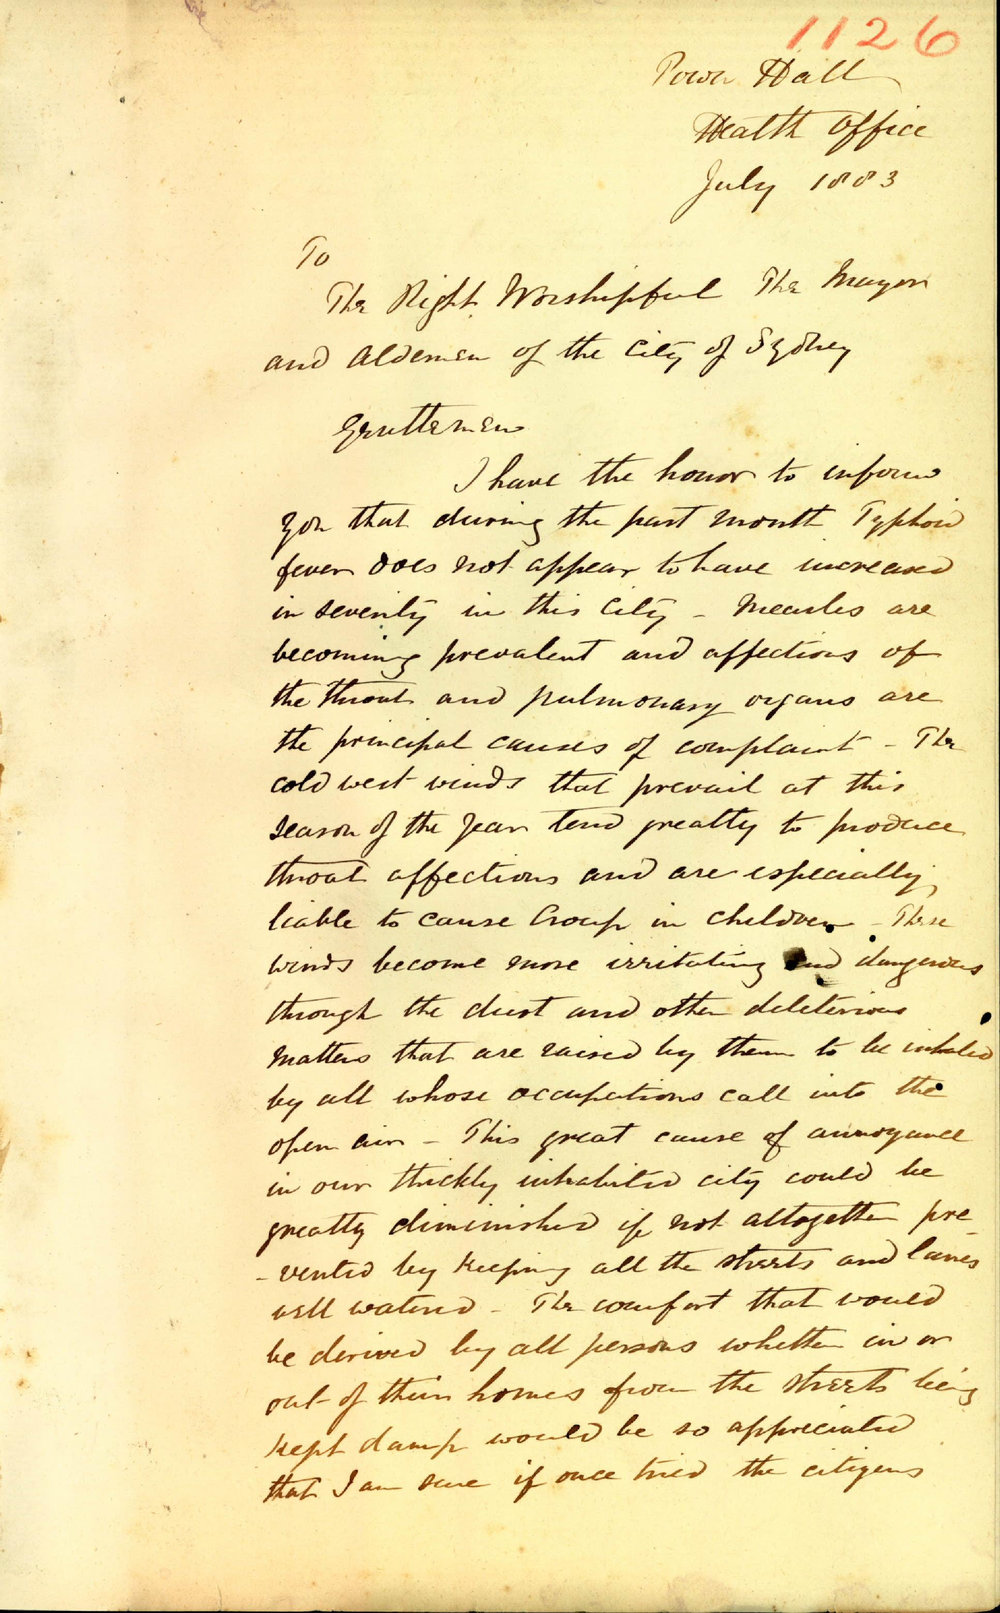 1126
Town Hall
Health Office
July 1883
To
The Right Worshipful The Mayor
and Aldemen of the City of Sydney
Gentlemen
I have the honor to inform
you that during the past month Typhoid
fever does not appear to have increased
in severity in this City - Measles are
becoming prevalent and affections of
the throat and pulmonary organs are
the principal causes of complaint - The
cold west winds that prevail at this
season of the year tend greatly to produce
throat affections and are especially
liable to cause Croup in children - These
winds become more irritating and dangerous
through the dust and other deleterious
matters that are raised by them to be inhaled
by all whose occupations call into the
open air - This great cause of annoyance
in our thickly inhabited city could be
greatly diminished if not altogether pre
-vented by keeping all the streets and lanes
well watered - The comfort that would
be derived by all persons whether in or
out of their homes from the streets being
kept damp would be so appreciated
that I am sure if once tried the citizens